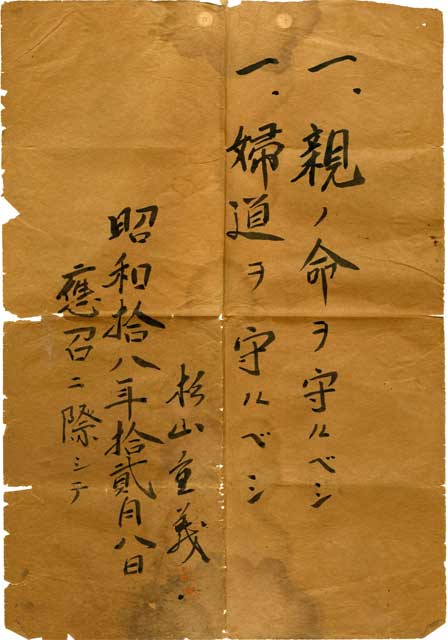 一、親ノ命ヲ守ルベシ
一、婦道ヲ守ルベシ
杉山重義
昭和拾八年拾貳月八日
應召ニ際シテ